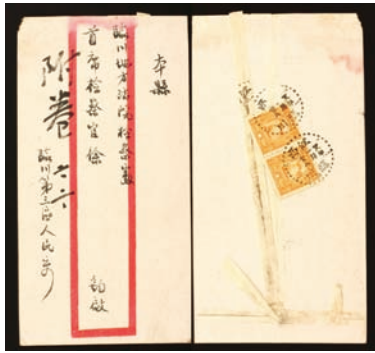 本縣
臨川地方法院檢察處
首席檢察官徐 鈞啟
附卷
六六
臨川第三區人民